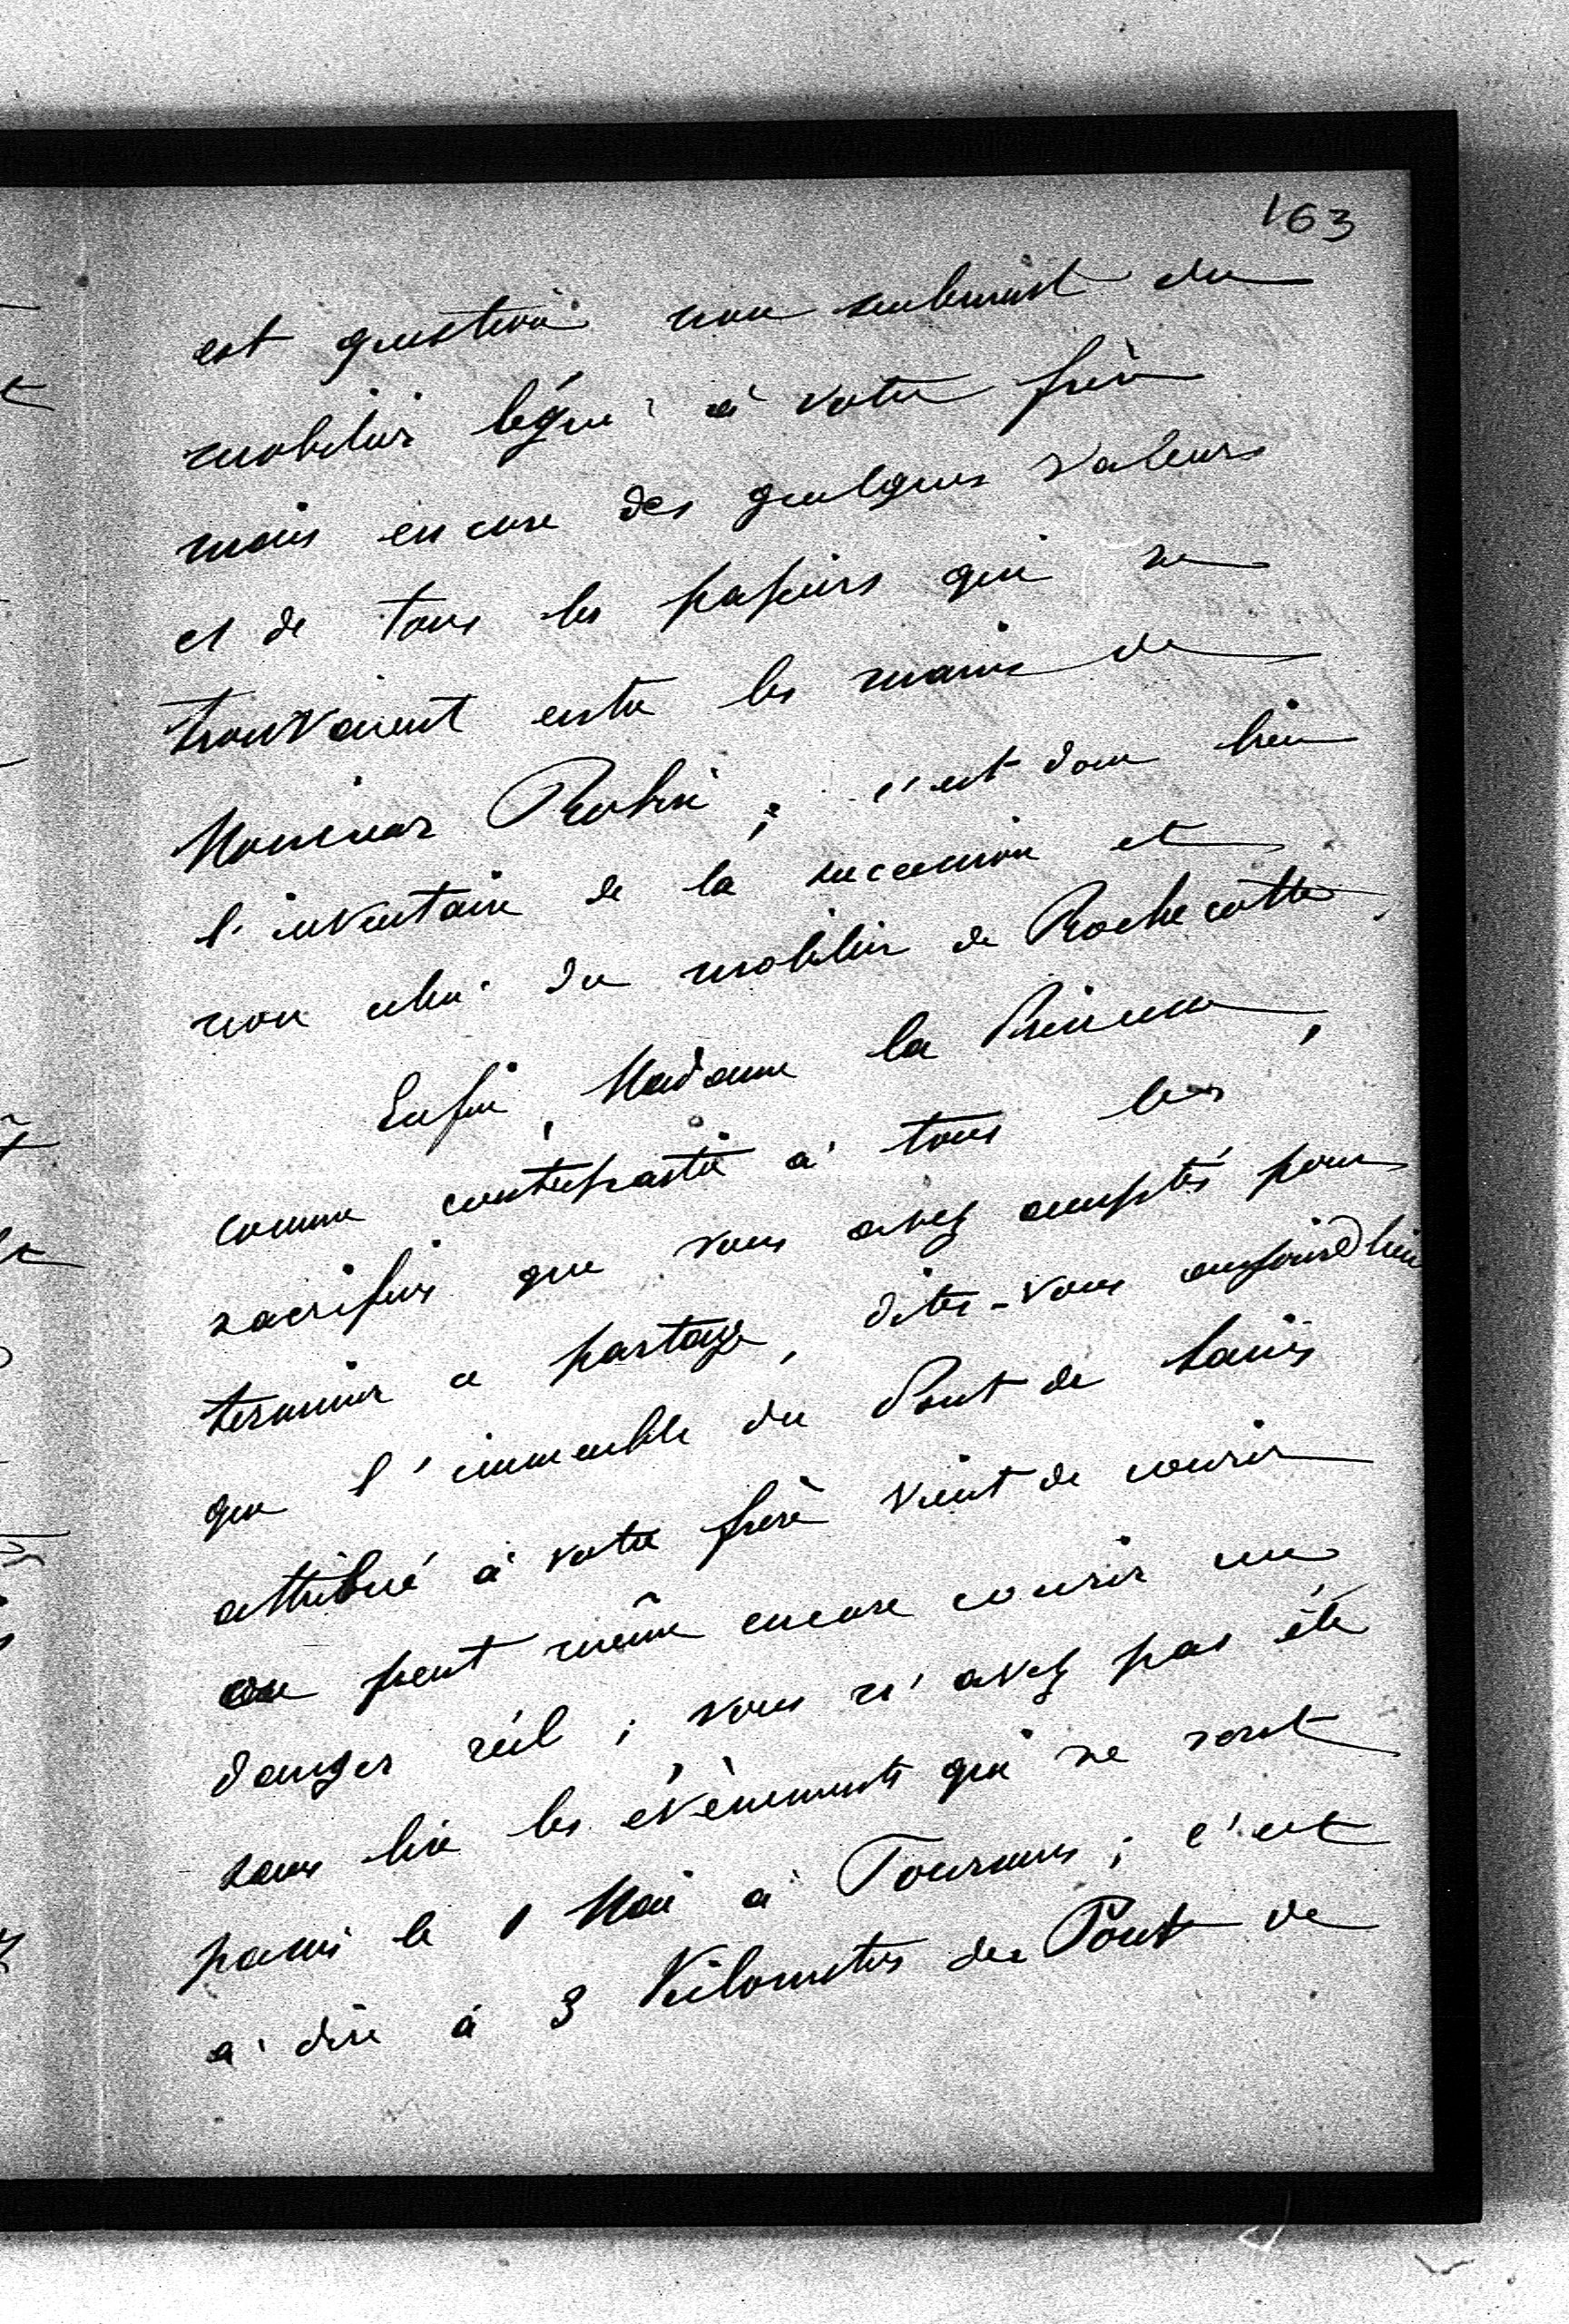 163
est question non seulement du
mobilier légué à votre frère
mais encore des quelques valeurs
et de tous les papiers qui se
trouvaient entre les mains de
Monsieur Robin ; c'est donc bien
l'inventaire de la succession et
non celui du mobilier de Rochecotte.
Enfin, Madame la Princesse,
comme contrepartie à tous les
sacrifices que vous avez acceptés pour
terminer ce partage, dites-vous aujourd'hui
que l'immeuble du Pont de
attribué à votre frère vient de courir
ou peut même encore courir un
danger réel ; vous n'avez pas été
sans lire les évènements qui se sont
passés le 1 Mai à ; c'est
a' dire à 3 Kilomètres du Pont de